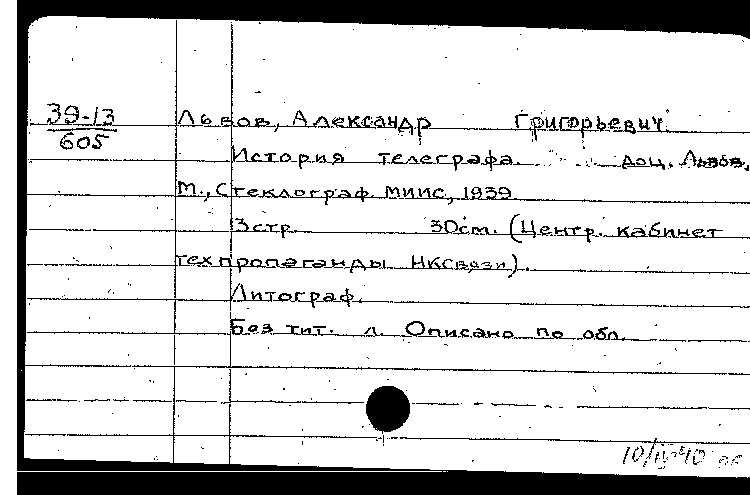 39-13
605
Львов, Александр Григорьевич.
История телеграфа. доц. Львов.
М., Стеклограф. МИИС, 1939
13стр. 30см. (Центр. кабинет
техпропаганды НКСвязи).
Литограф.
Без тит. л. Описано по обл.
10/IV-40